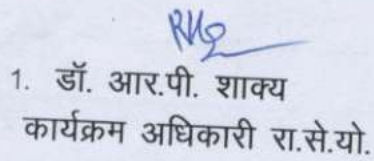 1. डॉ. आर.पी. शाक्य
कार्यक्रम अधिकारी रा.से.यो.